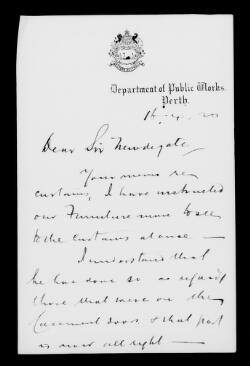 Department of Public Works.
Perth.
Dear Sir Newdegate,
Your memo re
curtains, I have instructed
our Furniture man to see
to the curtains at once —
I understand that
he has done so as regards
those that were on the
Casement doors & that part
is now all right —